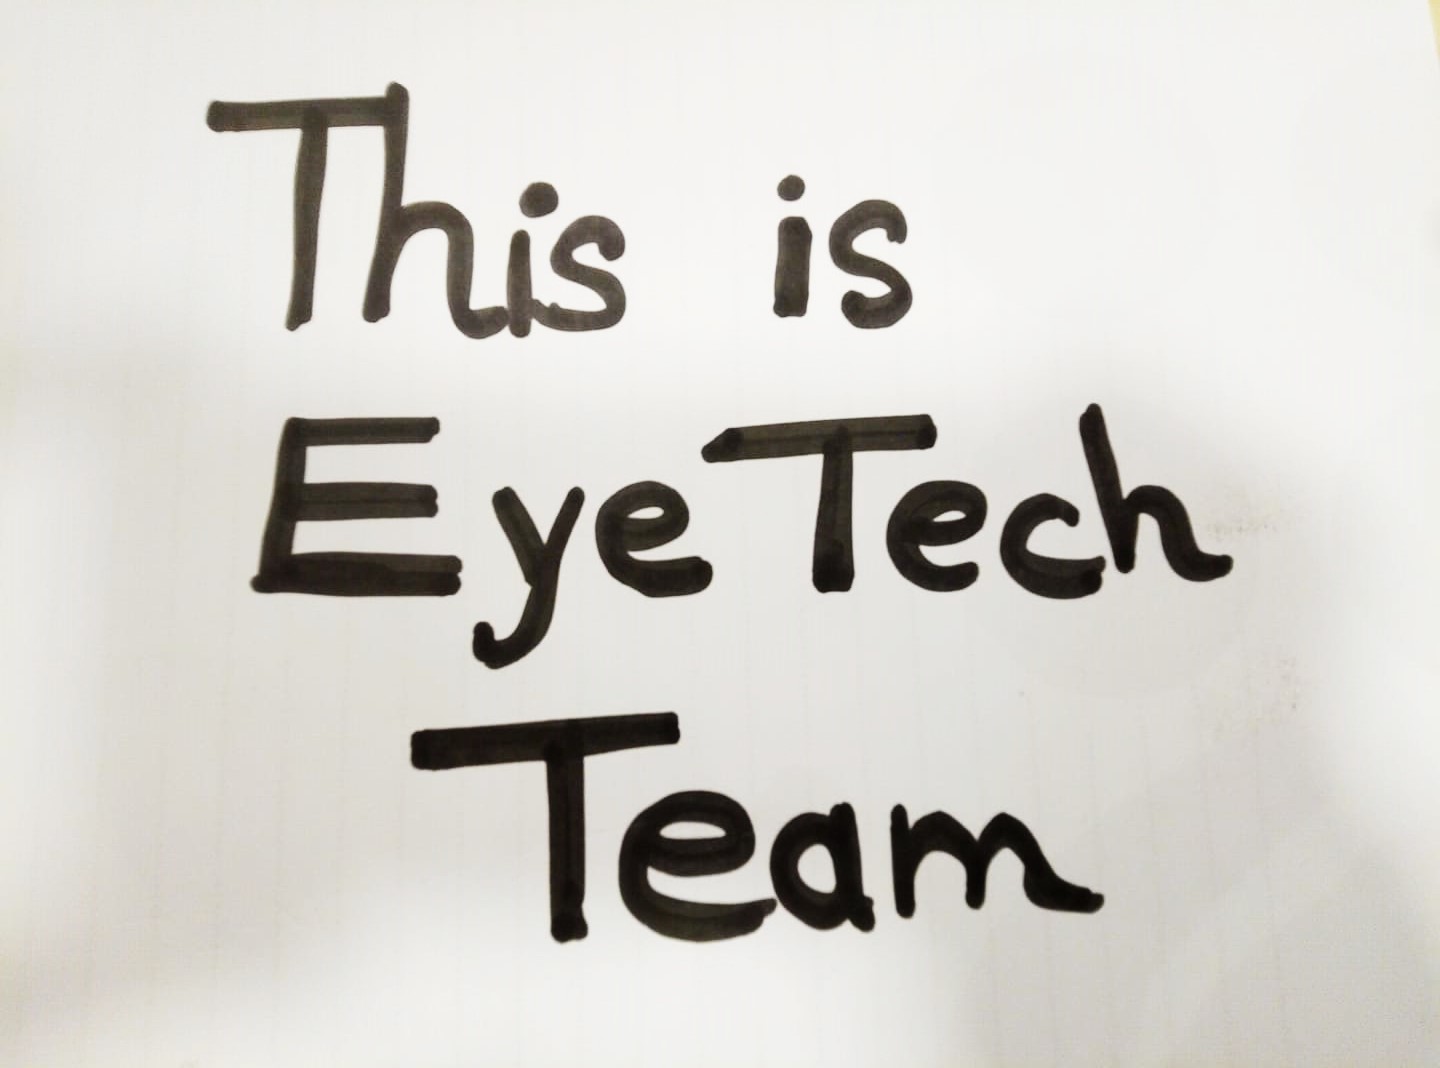 This is
EyeTech
Team